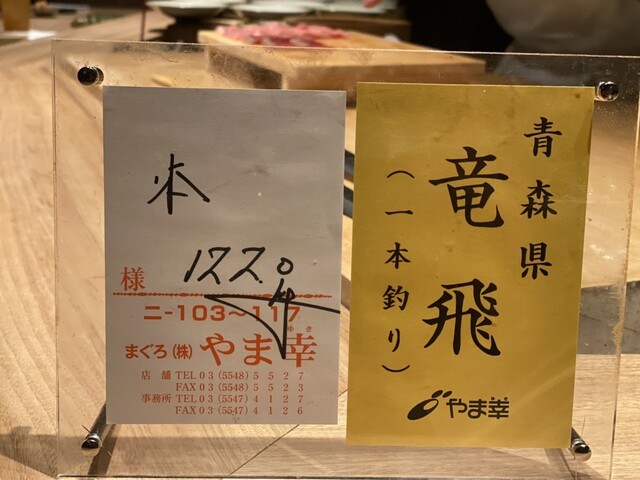 本
122.0
様
ニ-103〜117
まぐろ(株)やま幸
ゆき
店舗 TEL 03(5548)5527
FAX 03(5548)5523
事務所 TEL 03(5547)4127
FAX 03(5547)4126
青森県
竜飛
(一本釣り)
やま幸